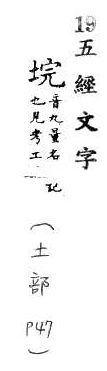 19五經文字
垸
音丸量名
也見考工
記
(土部
P47)